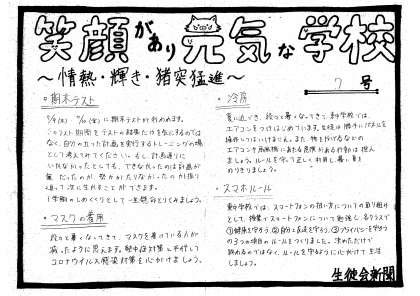 笑顔があり元気な学校
〜情熱・輝き・猪突猛進〜
7号
・期末テスト
に期末テストが行われます。
テスト期間をテストの結果だけを気にするのでは
なく、自分の立った計画を実行するトレーニングの場
として考えてみてください。もし計画通りに
いかなかったとしても、できなかったのは計画が
悪だったのか、努力が足りなかったのか振り
返って次に生かすことができます。
1学期のしめくくりとして一生懸命とりくみましょう。
・マスクの着用
段々と暑くなってきて、マスクを着けている人が
減ったように思えます。熱中症対策と平行して
コロナウイルス感染対策を心がけましょう。
・冷房
夏に近づき、段々と暑くなってきて、東中学校では、
エアコンをつけはじめています。生徒は勝手にパネルを
操作してはいけません。また、物を投げるなどの
エアコンを故障にあたる危険がある行動は控え
ましょう。ルールを守って正しく利用し、暑い夏を
のりきりましょう。
・スマホルール
東中学校では、スマートフォンの扱い方についての取り組み
として、授業でスマートフォンについて勉強し、各クラスで
①健康を守ろう②自分と友達を守ろう、③プライバシーを守ろう
の3つの項目のルールをつくりました。決めただけで
終わるのではなく、ルールを守るように心がけて生活
しましょう。
生徒会新聞